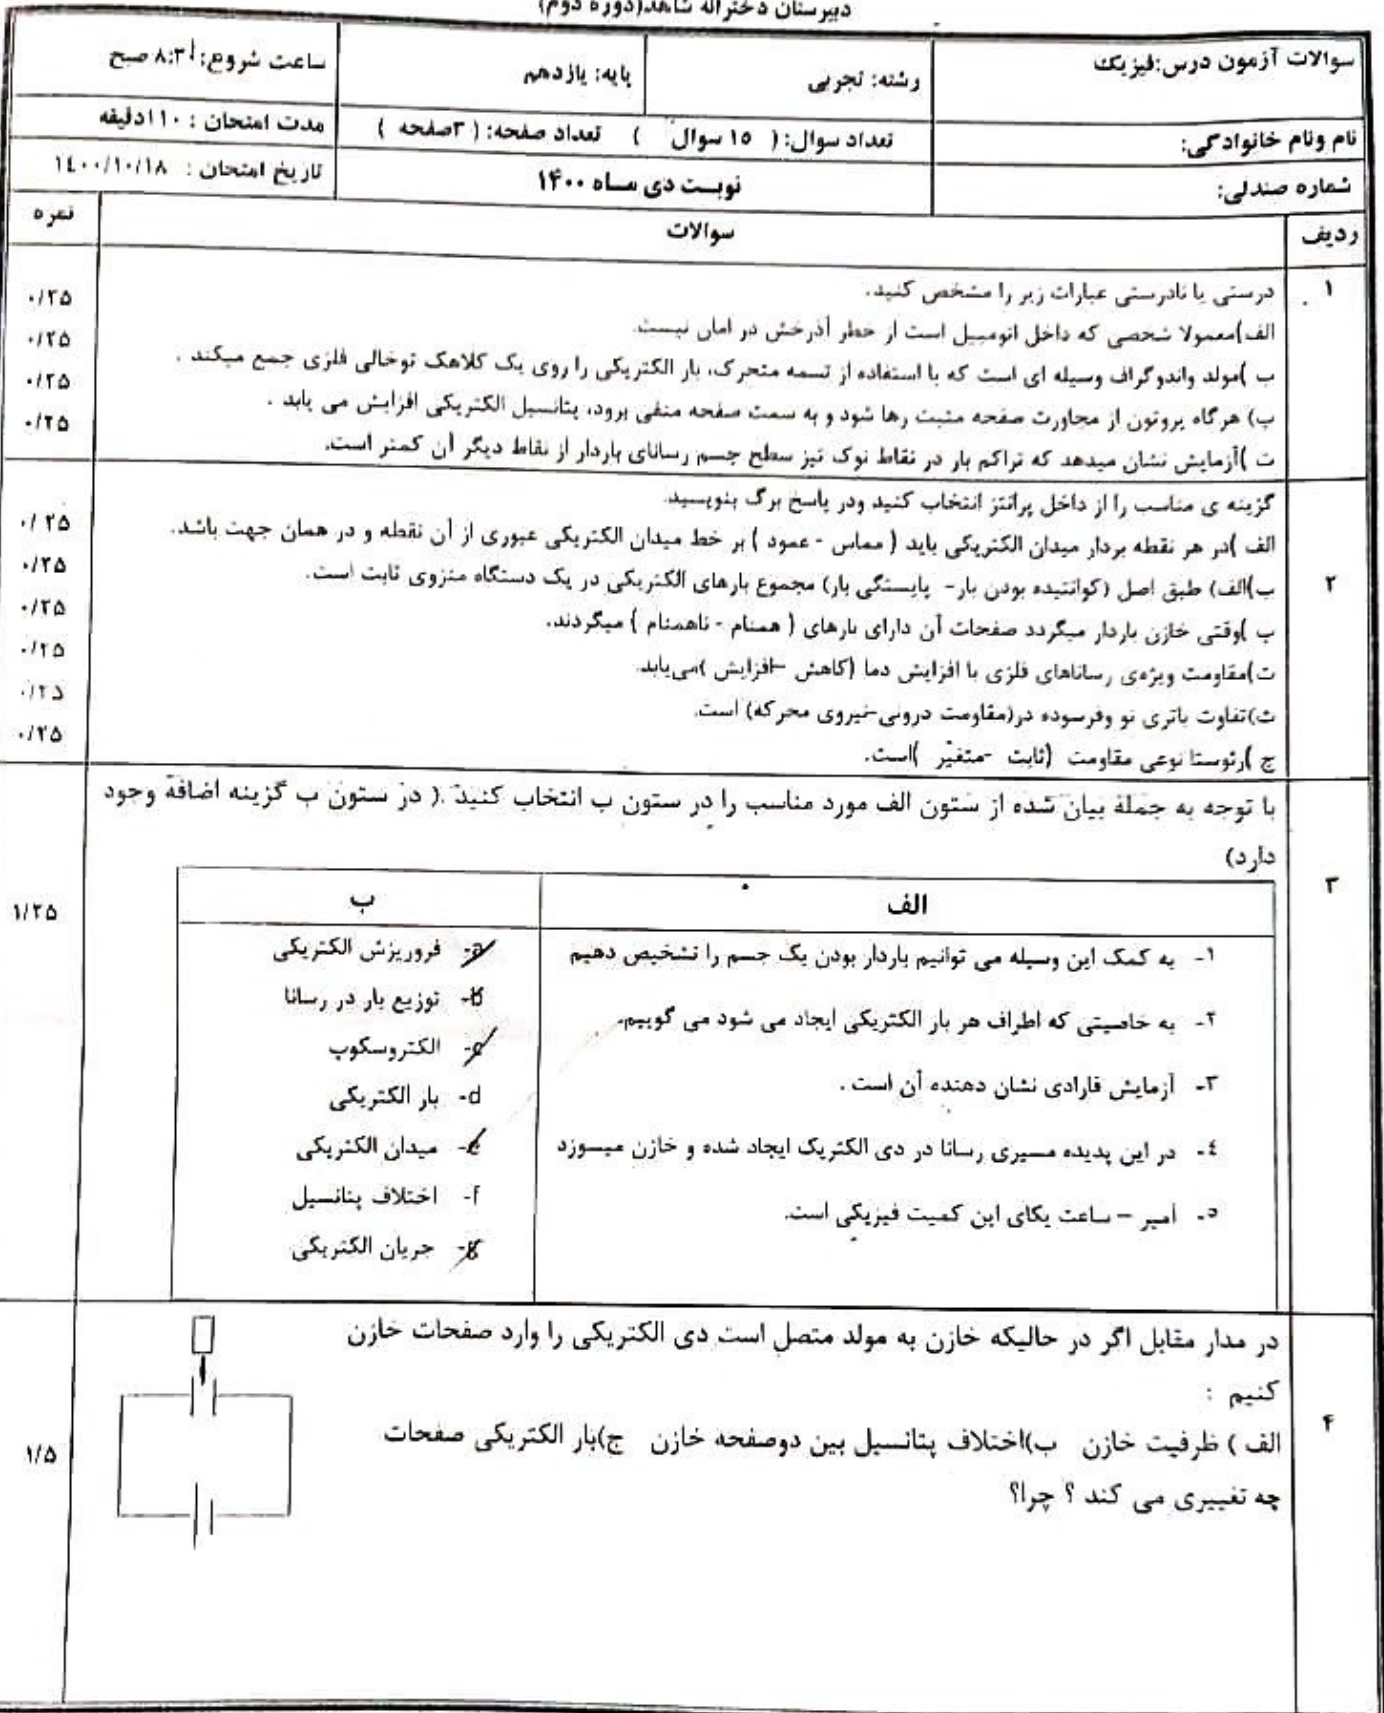 دبیرستان دخترانه شاهد(دوره دوم)
سوالات آزمون درس:فیزیک
رشته: تجربی
پایه: یازدهم
ساعت شروع: ۸:۳۰ صبح
نام ونام خانوادگی:
تعداد سوال: ( ۱۵ سوال ) تعداد صفحه: ( ۳صفحه )
مدت امتحان : ۱۱۰دقیقه
شماره صندلی:
نوبت دی ماه ۱۴۰۰
تاریخ امتحان : ۱٤۰۰/۱۰/۱۸
ردیف
سوالات
نمره
۱
درستی یا نادرستی عبارات زیر را مشخص کنید.
الف)معمولا شخصی که داخل اتومبیل است از خطر آذرخش در امان نیست.
ب )مولد واندوگراف وسیله ای است که با استفاده از تسمه متحرک، بار الکتریکی را روی یک کلاهک توخالی فلزی جمع میکند .
پ) هرگاه پروتون از مجاورت صفحه مثبت رها شود و به سمت صفحه منفی برود، پتانسیل الکتریکی افزایش می یابد .
ت )آزمایش نشان میدهد که تراکم بار در نقاط نوک تیز سطح جسم رسانای باردار از نقاط دیگر آن کمتر است.
۰/۲۵
۰/۲۵
۰/۲۵
۰/۲۵
۲
گزینه ی مناسب را از داخل پرانتز انتخاب کنید ودر پاسخ برگ بنویسید.
الف )در هر نقطه بردار میدان الکتریکی باید ( مماس - عمود ) بر خط میدان الکتریکی عبوری از آن نقطه و در همان جهت باشد.
ب)الف) طبق اصل (کوانتیده بودن بار- پایستگی بار) مجموع بارهای الکتریکی در یک دستگاه منزوی ثابت است.
پ )وقتی خازن باردار میگردد صفحات آن دارای بارهای ( همنام - ناهمنام ) میگردند.
ت)مقاومت ویژه‌ی رساناهای فلزی با افزایش دما (کاهش -افزایش )می‌یابد.
ث)تفاوت باتری نو وفرسوده در(مقاومت درونی-نیروی محرکه) است.
ج )رئوستا نوعی مقاومت (ثابت -متغیّر )است.
۰/۲۵
۰/۲۵
۰/۲۵
۰/۲۵
۰/۲۵
۰/۲۵
۳
با توجه به جملهٔ بیان شده از ستون الف مورد مناسب را در ستون ب انتخاب کنید .( در ستون ب گزینه اضافه وجود
دارد)
۱/۲۵
الف
ب
۱- به کمک این وسیله می توانیم باردار بودن یک جسم را تشخیص دهیم
۲- به خاصیتی که اطراف هر بار الکتریکی ایجاد می شود می گوییم.
۳- آزمایش فارادی نشان دهنده آن است .
٤- در این پدیده مسیری رسانا در دی الکتریک ایجاد شده و خازن میسوزد
٥- آمپر – ساعت یکای این کمیت فیزیکی است.
a- فروریزش الکتریکی
b- توزیع بار در رسانا
c- الکتروسکوپ
d- بار الکتریکی
e- میدان الکتریکی
f- اختلاف پتانسیل
g- جریان الکتریکی
۴
در مدار مقابل اگر در حالیکه خازن به مولد متصل است دی الکتریکی را وارد صفحات خازن
کنیم :
الف ) ظرفیت خازن ب)اختلاف پتانسیل بین دوصفحه خازن ج)بار الکتریکی صفحات
چه تغییری می کند ؟ چرا؟
۱/۵